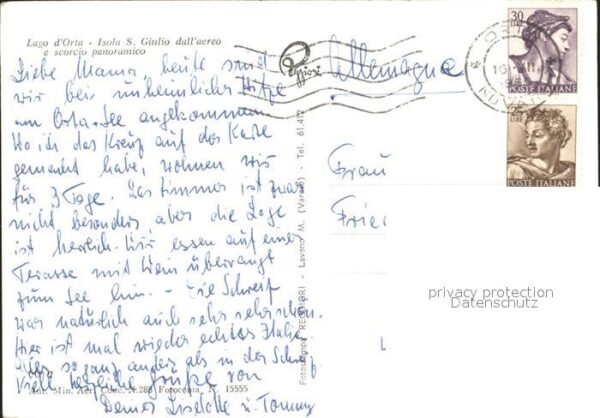 Lago d'Orta - Isola S. Giulio dall'aereo
e scorcio panoramico
Liebe Mama, heute sind
wir bei unheimlicher Hitze
am Orta-See angekommen
Wo ich das Kreuz auf der Karte
gemacht habe, wohnen wir
für 3 Tage. Das Zimmer ist zwar
nicht besonders, aber die Lage
ist herrlich. Wir essen auf einer
Terasse mit Wein überrangt
zum See hin. - Die Schweiz
war natürlich auch sehr sehr schön.
Hier ist mal wieder echtes Italien
so ganz anders als in der Schweiz
Viele herzliche Grüße von
Deiner Liselotte u. Tommy
Aut. Min. Aer. Conc. N. 288 Fotocopia N. 15555
Fotostampa REGGIORI - Laveno M. (Varese) - Tel. 61.412
Allemagne
Frau
Fried
30
POSTE ITALIANE
25
LIRE
POSTE ITALIANE
privacy protection
Datenschutz